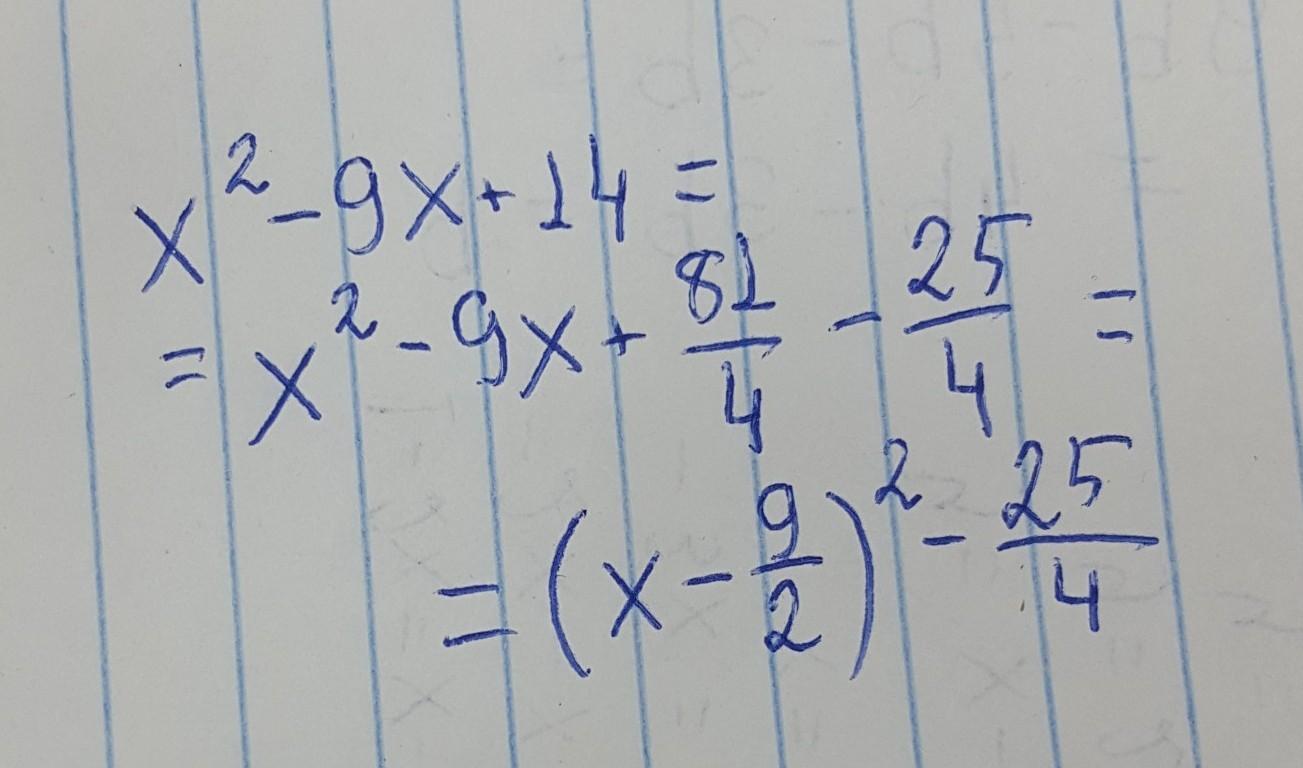 x² - 9x + 14 =
= x² - 9x + 81/4 - 25/4 =
= (x - 9/2)² - 25/4